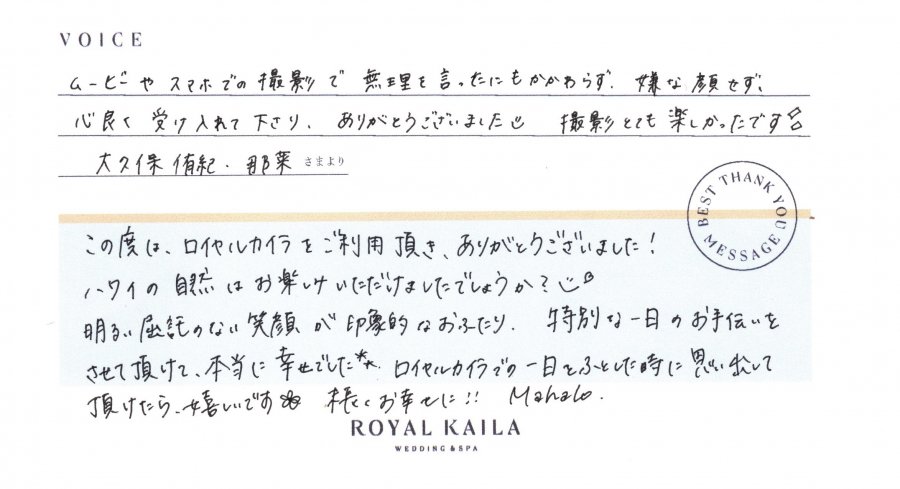 VOICE
ムービーやスマホでの撮影で 無理を言ったにもかかわらず、嫌な顔せず、
心良く 受け入れて下さり、ありがとうございました 撮影とても楽しかったです
大久保 侑紀・那菜 さまより
BEST THANK YOU MESSAGE
この度は、ロイヤルカイラをご利用頂き、ありがとうございました!
ハワイの自然はお楽しみいただけましたでしょうか?
明るい屈託のない笑顔が印象的なおふたり、特別な一日のお手伝いを
させて頂けて、本当に幸せでした ロイヤルカイラでの一日をふとした時に思い出して
頂けたら、嬉しいです 末長くお幸せに!! Mahalo.
ROYAL KAILA
WEDDING & SPA